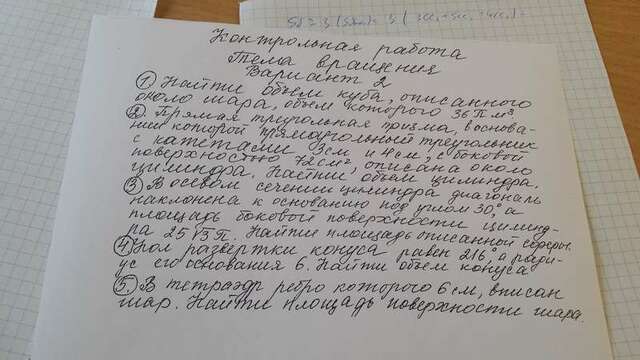 Контрольная работа
Тема вращения
Вариант 2
① Найти объем куба, описанного
около шара, объем которого 36π м³
② Прямая треугольная призма, в основа-
нии которой прямоугольный треугольник
с катетами 3см и 4см, с боковой
поверхностью 72см², описана около
цилиндра. Найти объем цилиндра.
③ В осевом сечении цилиндра диагональ
наклонена к основанию под углом 30°, а
площадь боковой поверхности цилинд-
ра 25√3π. Найти площадь описанной сферы.
④ Угол развертки конуса равен 216°, а ради-
ус его основания 6. Найти объем конуса
⑤. В тетраэдр ребро которого 6см, вписан
шар. Найти площадь поверхности шара.